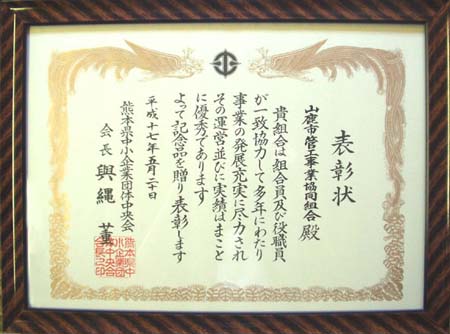 表彰状
山鹿市管工事業協同組合 殿
貴組合は組合員及び役職員
が一致協力して多年にわたり
事業の発展充実に尽力され
その運営並びに実績はまこと
に優秀であります
よって記念品を贈り表彰します
平成十七年五月二十日
熊本県中小企業団体中央会
会長 與縄 義昭